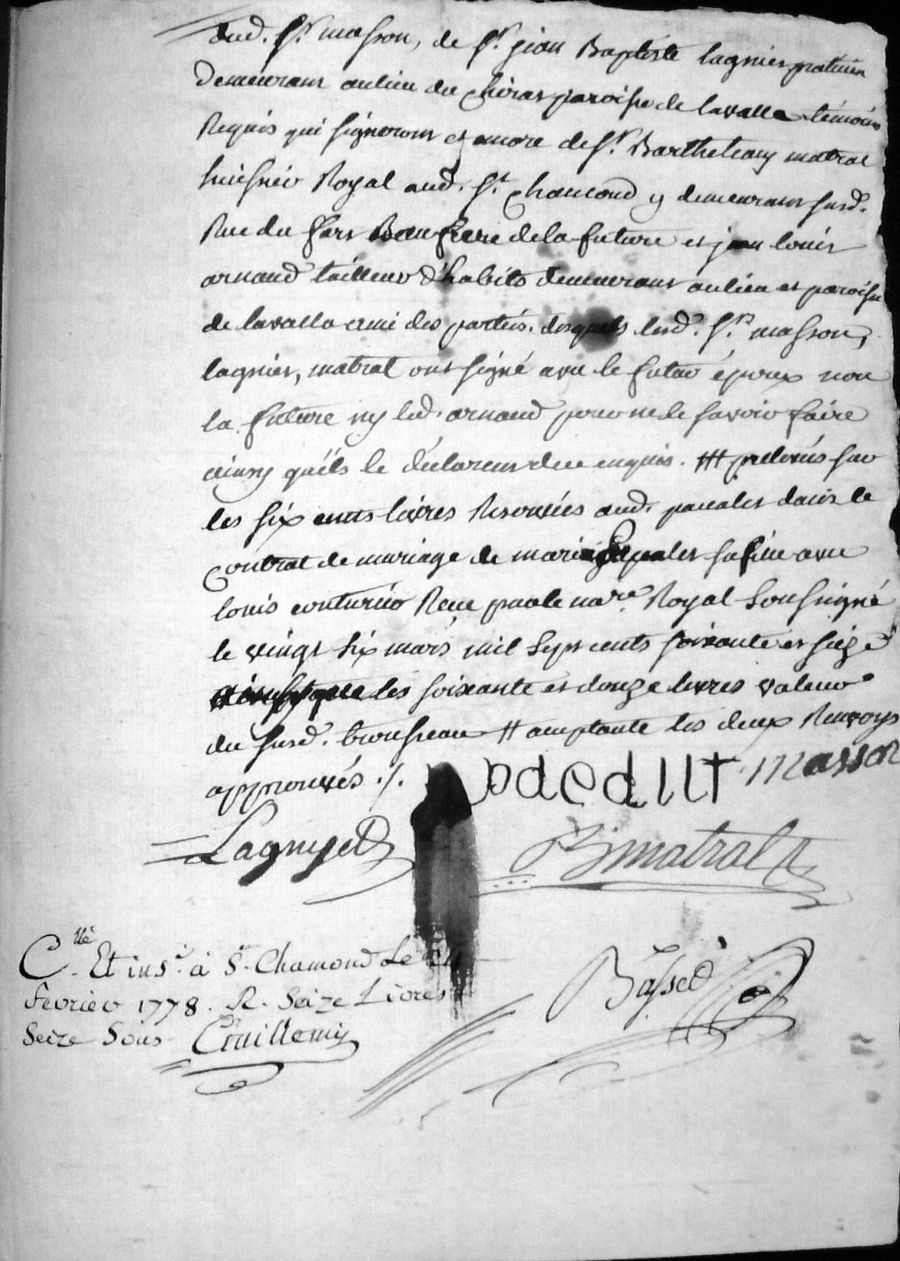 dud. Sr. masson, de Sr. jean Baptiste lagnier praticien
demeurant au lieu du Chirat paroisse de lavalla témoins
Requis qui signeront et encore de Sr. Barthelemy matrat
huissier Royal aud. St. chamond y demeurant susd.
Rue du fort Beaufrere de la future et jean louis
arnaud tailleur d'habits demeurant au lieu et paroisse
de lavalla ami des parties. desquels lesd. Srs. masson,
lagnier, matrat ont signé avec le futur époux non
la future ny led. arnaud pour ne le savoir faire
ainsy qu'ils le déclarent de ce enquis. ## prelevés sur
les six cents livres Reservées aud. pacalet dans le
contrat de mariage de marie pacalet sa fille avec
louis couturier Recu par le nare. Royal soussigné
le vingt six mars mil sept cents soixante et seize
les soixante et douze livres valeur
du susd. trousseau # acceptante les deux Renvoys
approuvés ./. masson
Lagnyet B matrat
Cllé. Et ins.é à St. Chamond Le 24
Fevrier 1778. R. Seize Livres
Seize Sous